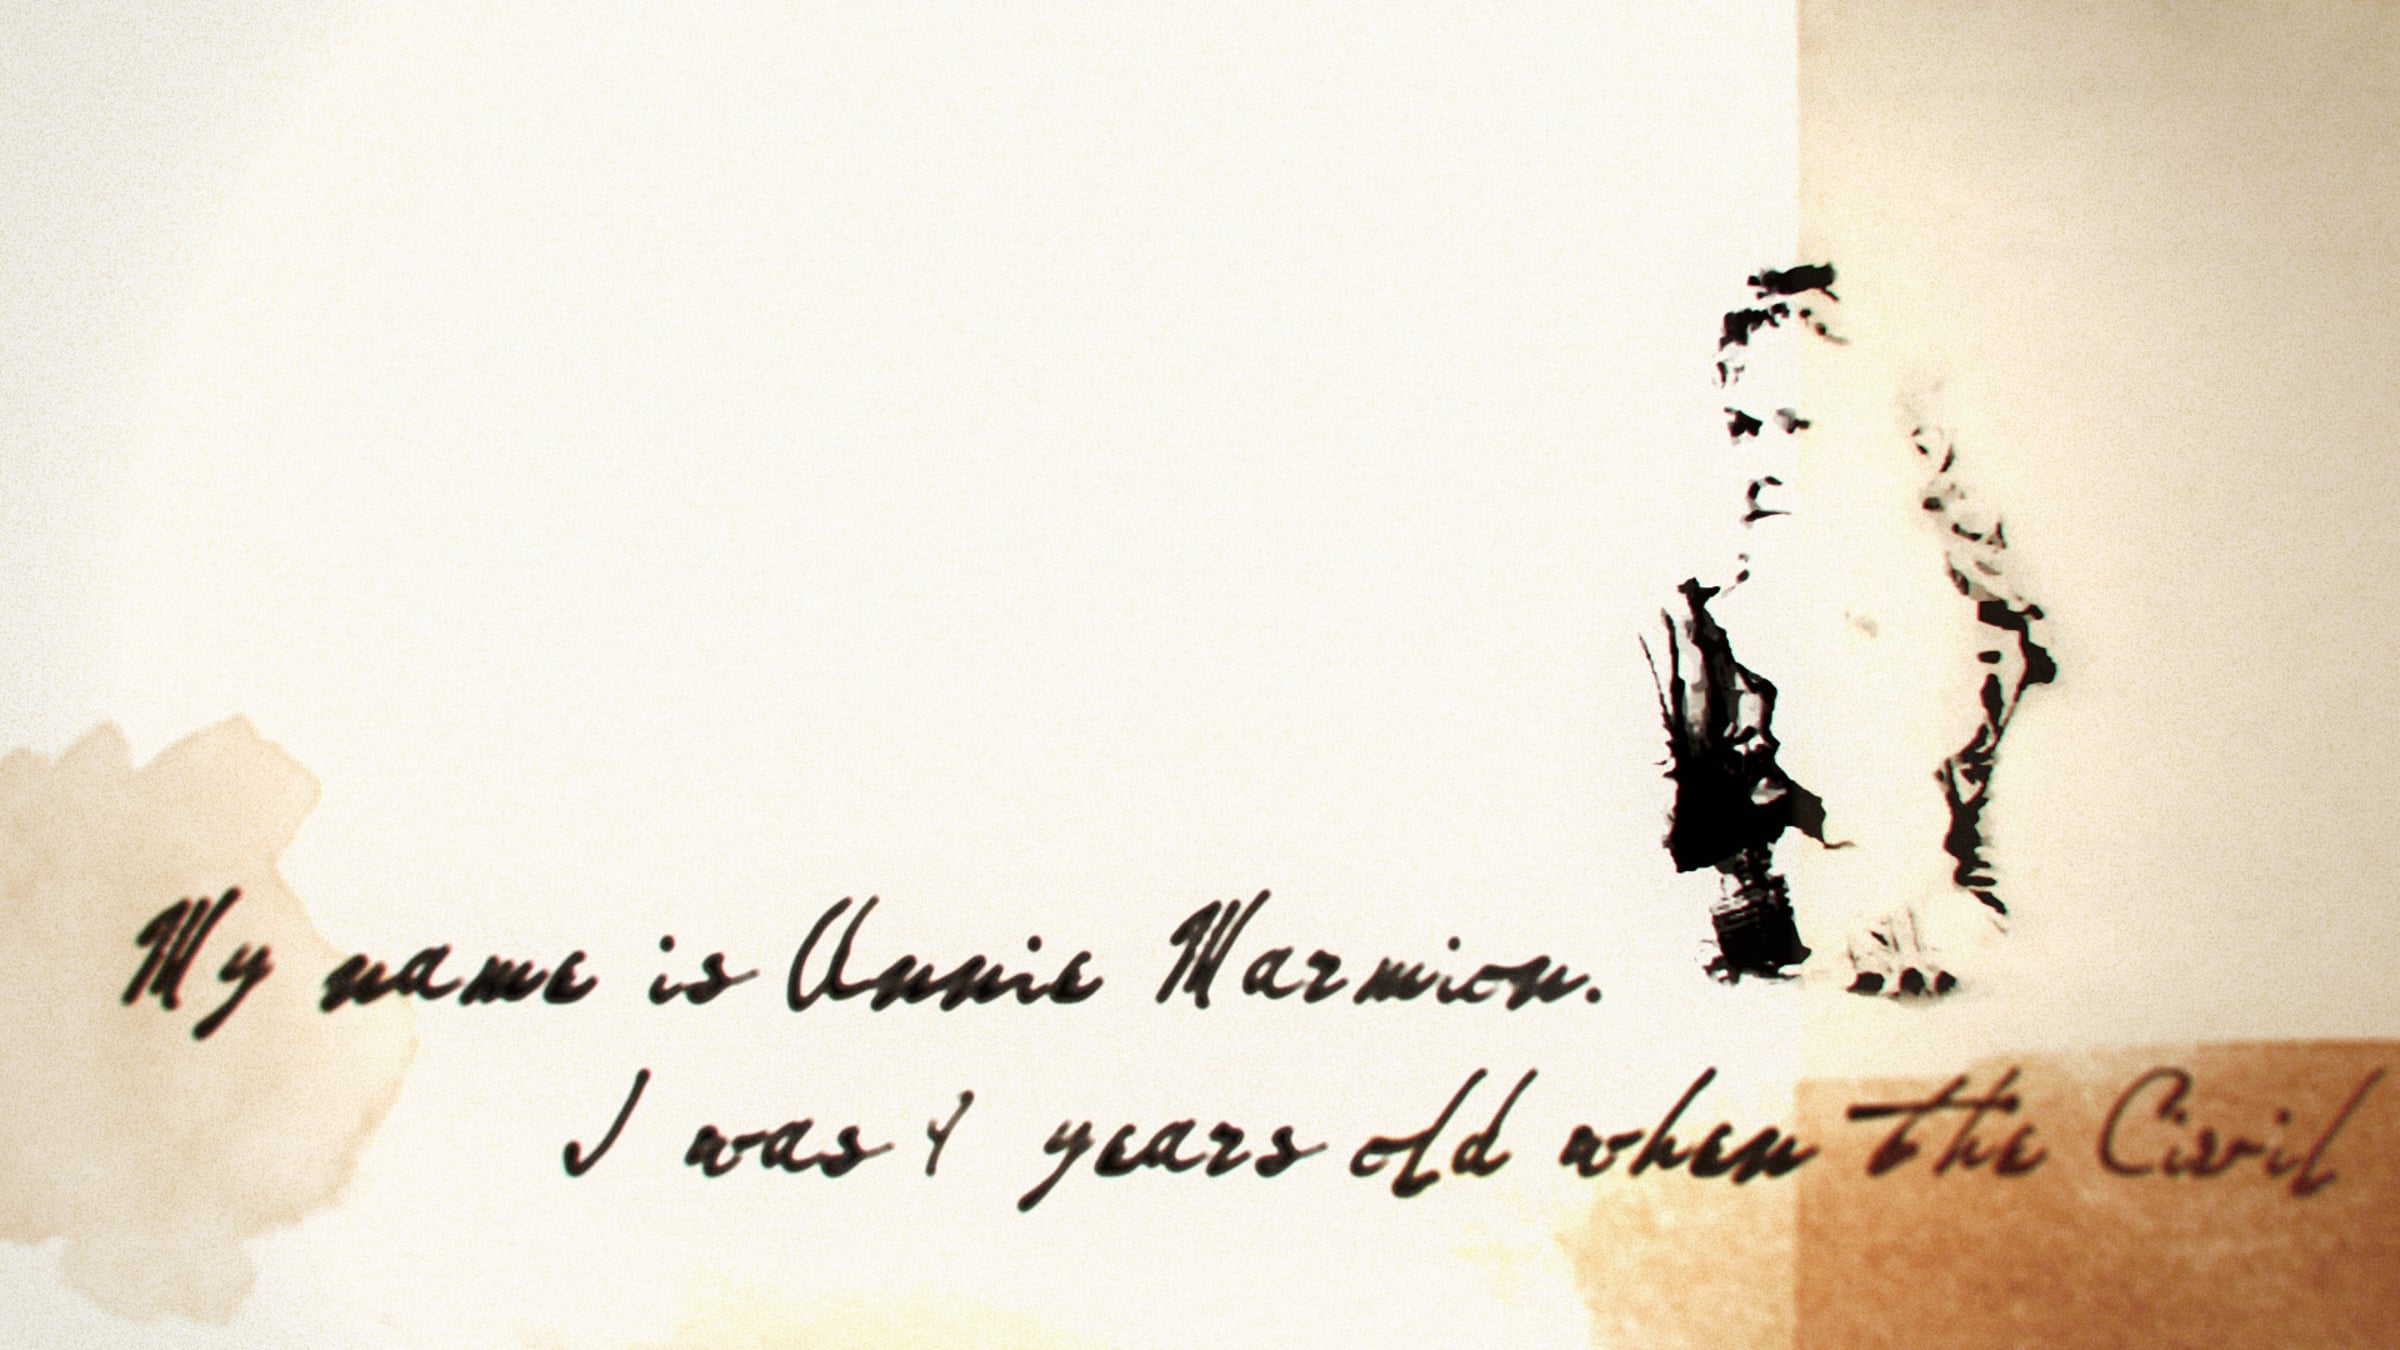 My name is Annie Marmion.
I was years old when the Civil